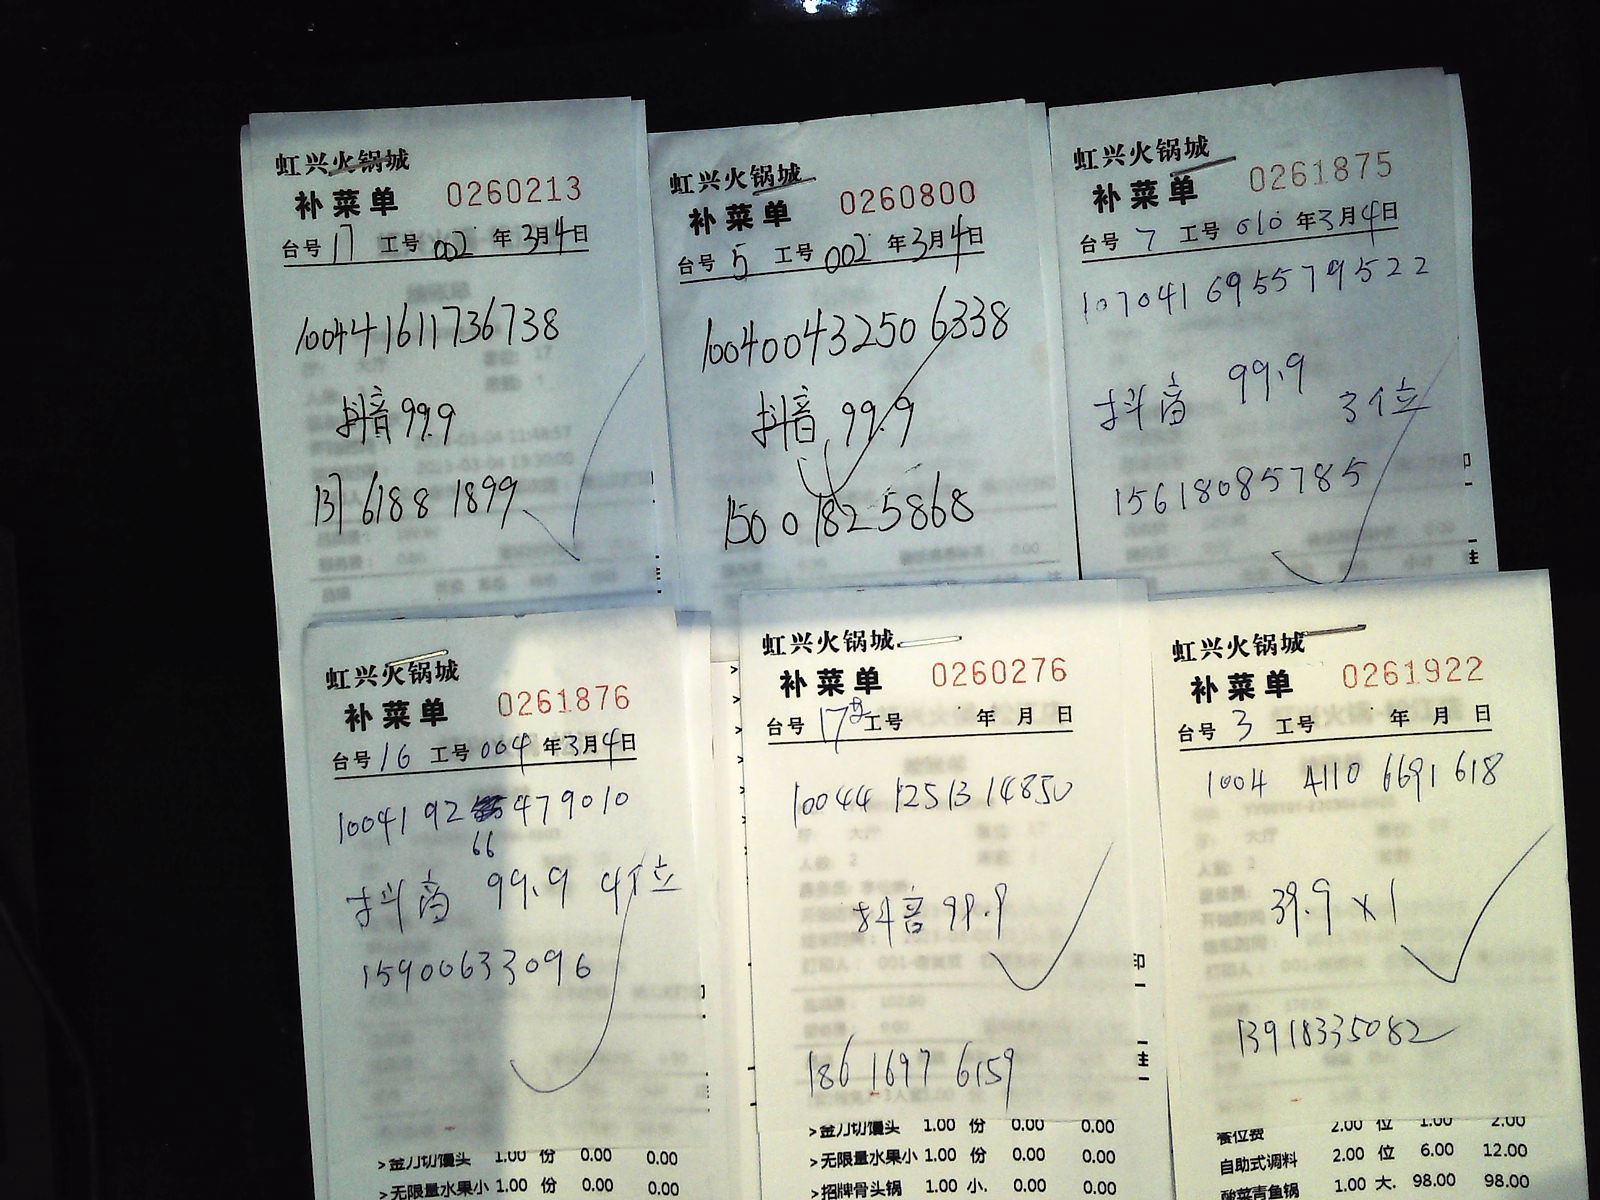 虹兴火锅城
补菜单 0260213
台号 17 工号 002 年 3月4日
100441611736738
抖音 99.9
137 6188 1899
虹兴火锅城
补菜单 0260800
台号 5 工号 002 年 3月4日
100400432506338
抖音 99.9
150 0 182 5868
虹兴火锅城
补菜单 0261875
台号 7 工号 010 年 3月4日
107041695579522
抖音 99.9 3位
15618085785
虹兴火锅城
补菜单 0261876
台号 16 工号 004 年 3月4日
10041 92 479010
66
抖音 99.9 4位
15900633096
>金刀切馒头 1.00 份 0.00 0.00
>无限量水果小 1.00 份 0.00 0.00
虹兴火锅城
补菜单 0260276
台号 17 工号 年 月 日
10044 1251314850
抖音 99.9
186 1697 6159
>金刀切馒头 1.00 份 0.00 0.00
>无限量水果小 1.00 份 0.00 0.00
>招牌骨头锅 1.00 小. 0.00 0.00
虹兴火锅城
补菜单 0261922
台号 3 工号 年 月 日
1004 4110 6691 618
39.9 x 1
13918335082
餐位费 2.00 位 1.00 2.00
自助式调料 2.00 位 6.00 12.00
酸菜青鱼锅 1.00 大. 98.00 98.00